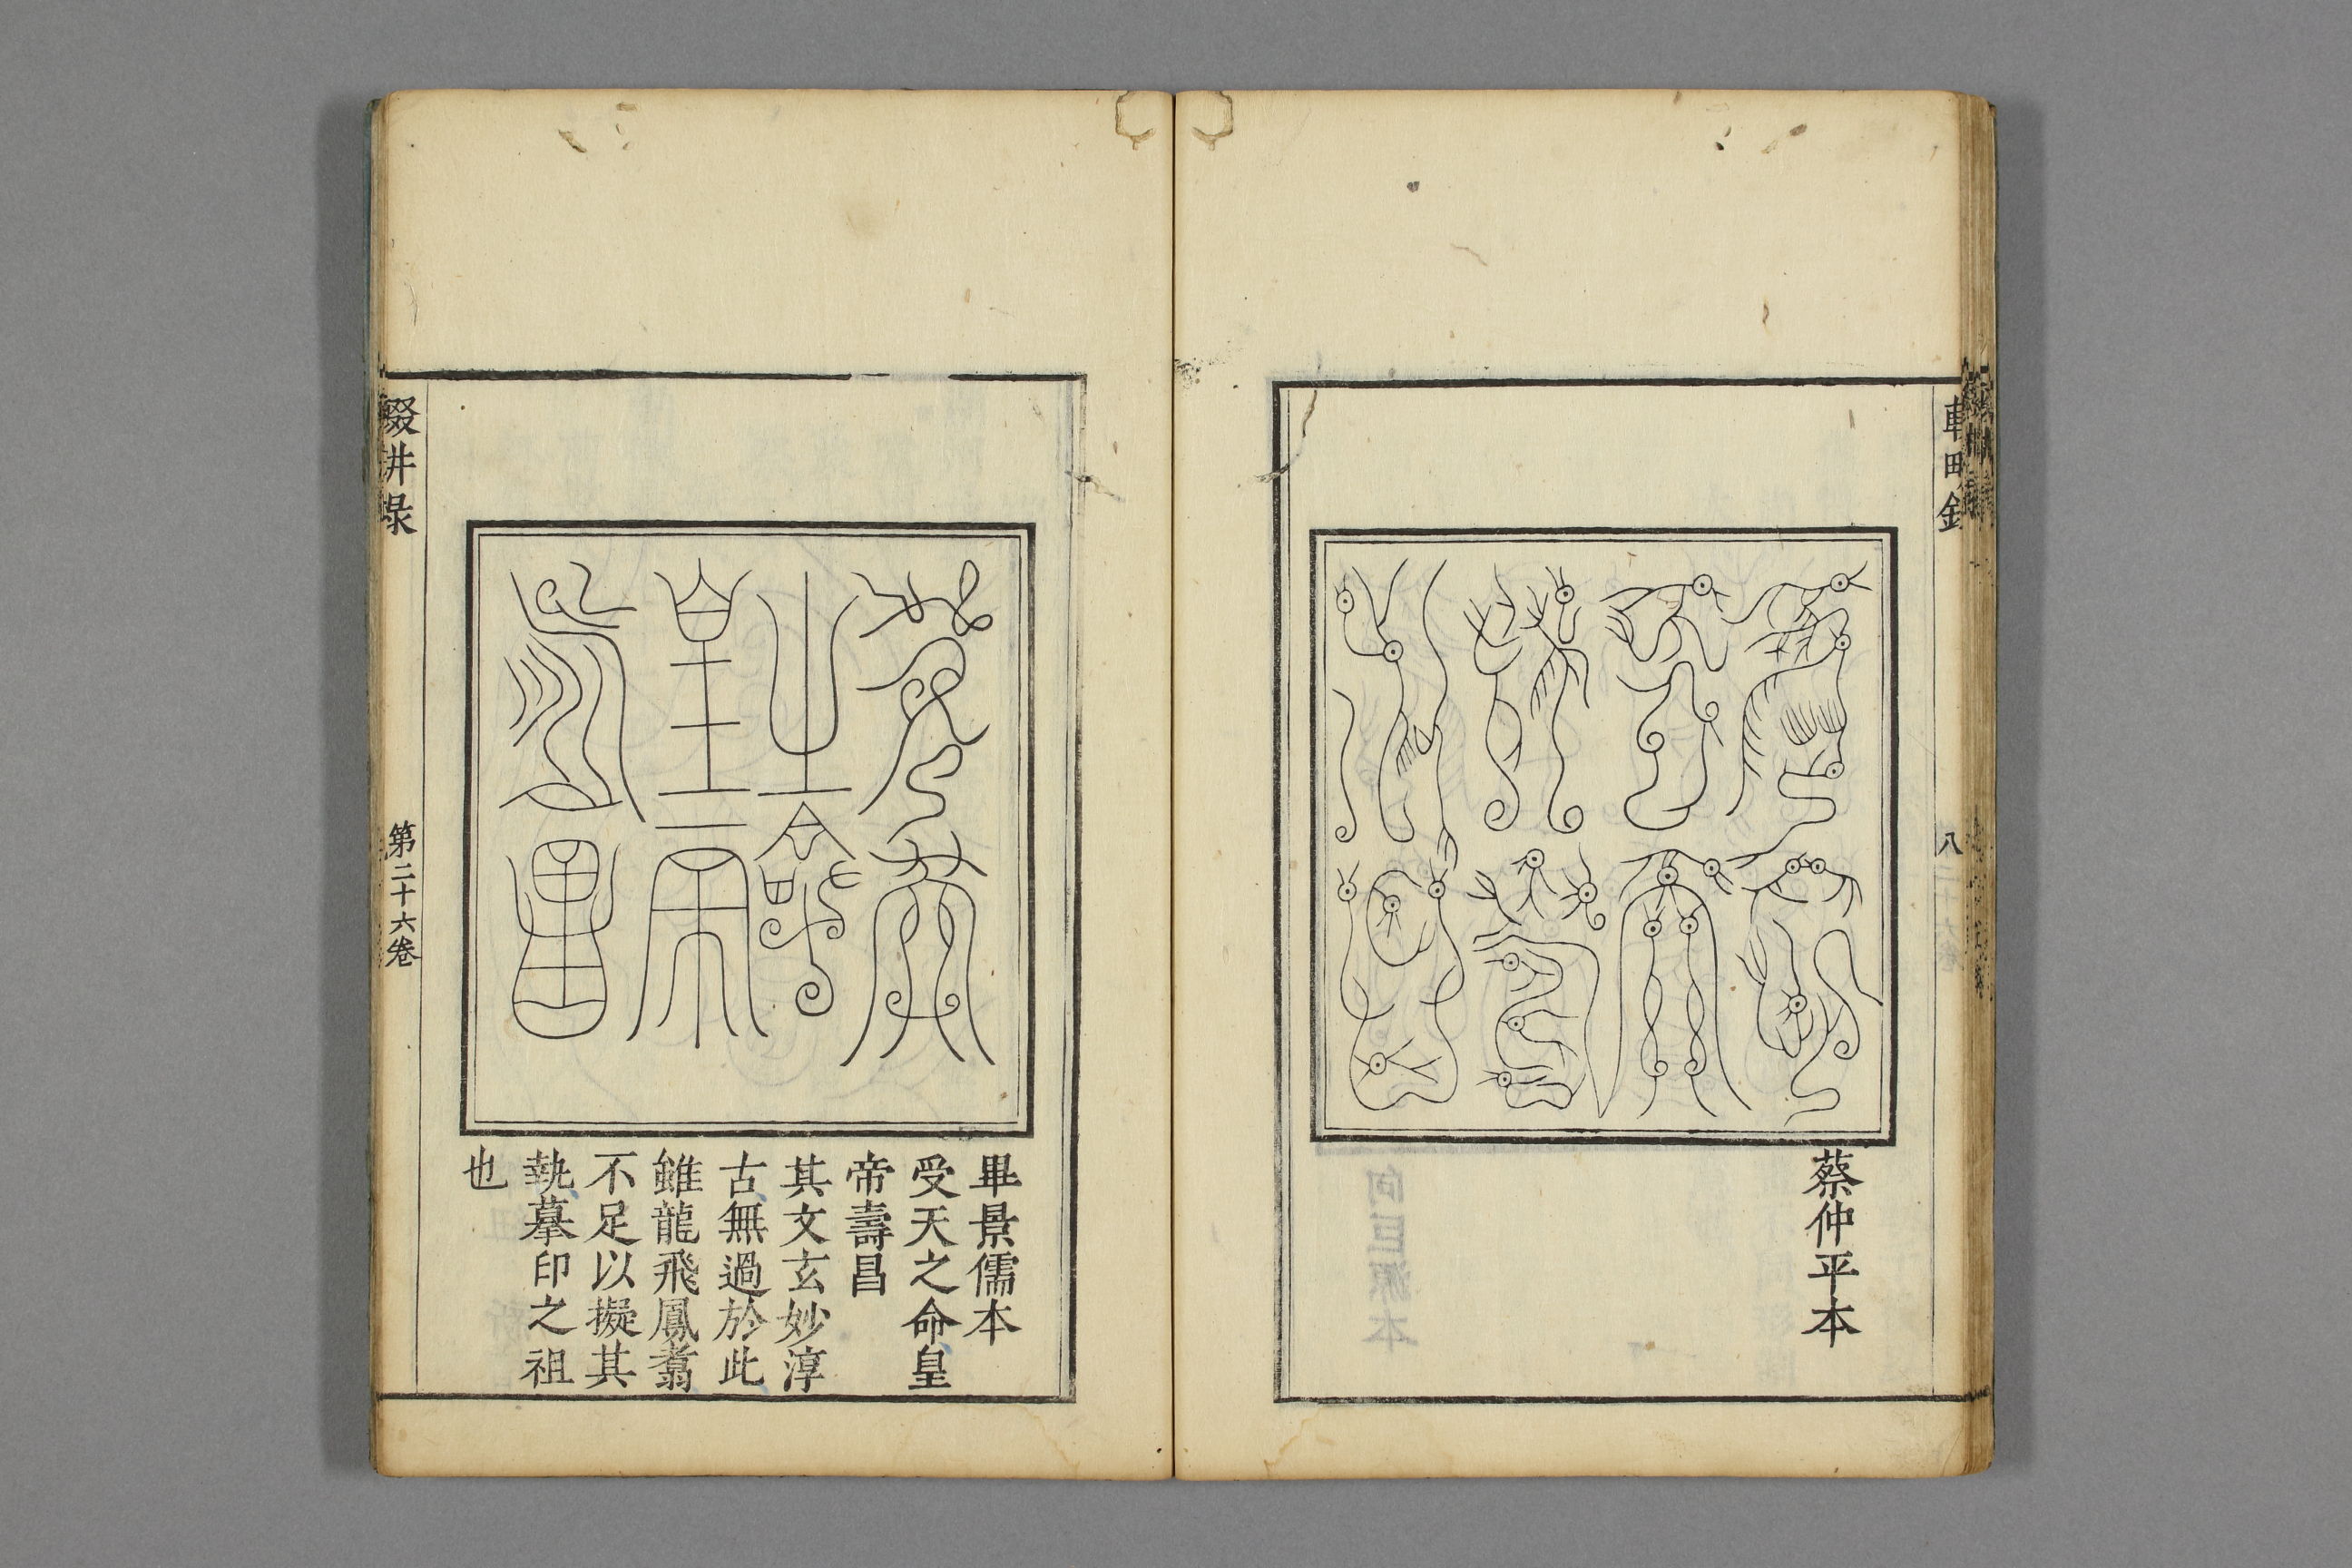 蔡仲平本
八
畢景儒本
受天之命皇
帝壽昌
其文玄妙淳
古無過於此
雖龍飛鳳翥
不足以擬其
執摹印之祖
也
輟耕录
第二十六卷